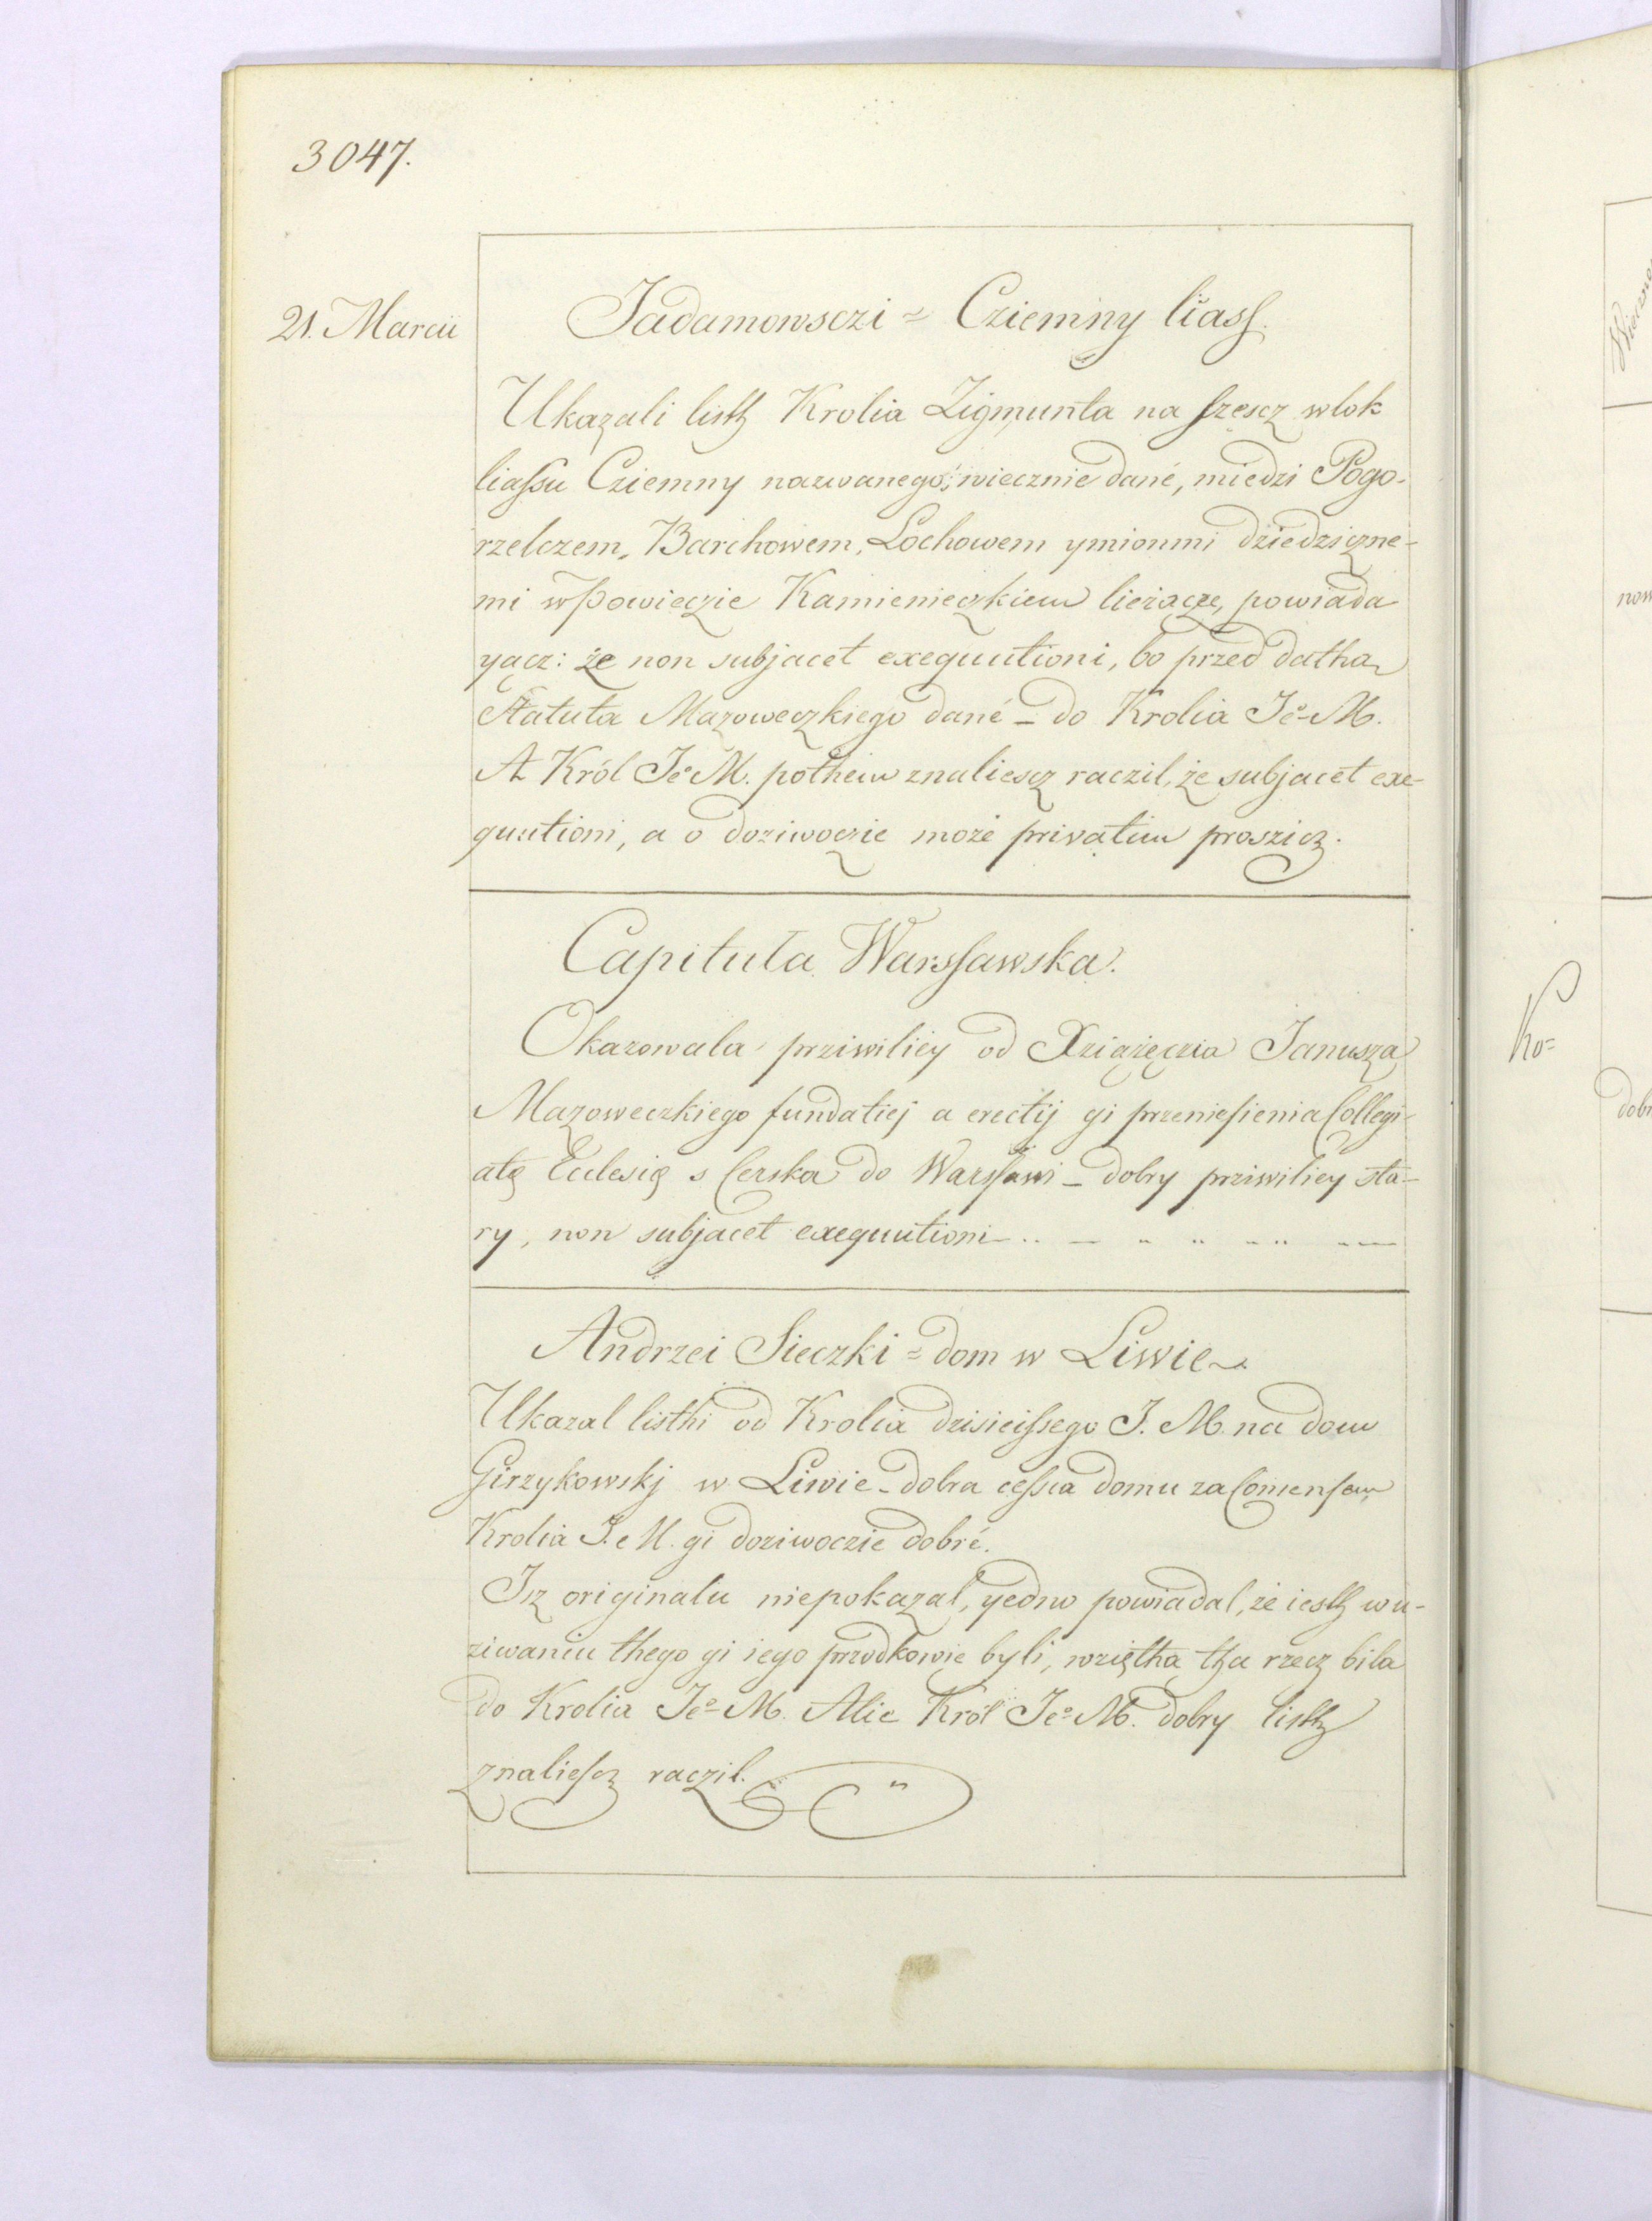 3047.
21. Marcii
Jadamowsczi = Cziemny liass.
Ukazali listh Krolia Zigmunta na szescz wlok
liassu Cziemny nazwanego, wiecznie dané, miedzi Pogo-
rzelczem, Barchowem, Lochowem ymionmi dziedziczne-
mi w Powieczie Kamienieczkiem lieżącze, powiada
yącz: że non subjacet exequutioni, bo przed datha
Statuta Mazoweczkiego dané _ do Krolia Je° M.
A Król Je° M. pothem znaliescz raczil, że subjacet exe-
quutioni, a o doziwoczie może privatim proszicz.
Capituła Warssawska.
Okazowala prziwiliey od Xziążęczia Janusza
Mazoweczkiego fundatiej a erectij gi przeniesienia Collegi-
atę Eclesię s Cerska do Warssawi _ dobry prziwiliey sta-
ry, non subjacet exequutioni
Andrzei Sieczki = dom w Liwie.
Ukazal listhi od Krolia dzisieissego J. M. na dom
Girzykowskj w Liwie _ dobra cessia domu za Consensem
Krolia J. M. gi doziwoczie dobré.
Isz originalu niepokazal, yedno powiadal, że iesth w u-
ziwaniu thego gi iego przodkowie byli, wziętha tha rzecz bila
do Krolia Je° M. Alie Król Je° M. dobry listh
znaliescz raczil.
now
dobr